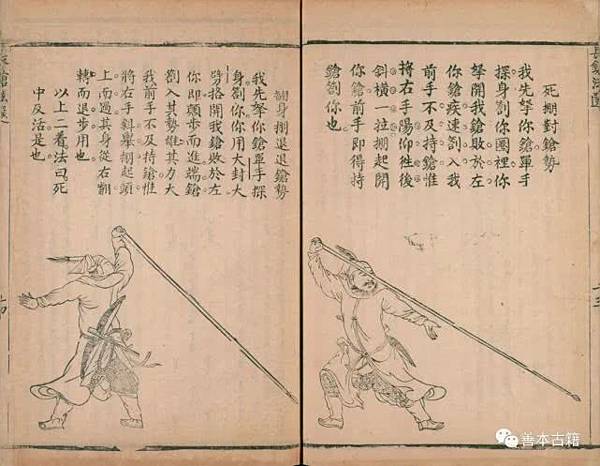 長鎗法選
死掤對鎗勢
我先拏你鎗單手
探身劄你圈裡你
拏開我鎗敗於左
你鎗疾速劄入我
前手不及持鎗惟
將右手陽仰徃後
斜橫一拉掤起開
你鎗前手即得持
鎗劄你也
翻身掤退退鎗勢
我先拏你鎗單手探
身劄你你用大封大
劈挌開我鎗敗於左
你即顛步而進端鎗
劄入其勢雄其力大
我前手不及持鎗惟
將右手斜舉掤起頭
上而過其身從右翻
轉而退步用也
以上二着法曰死
中反活是也
善本古籍